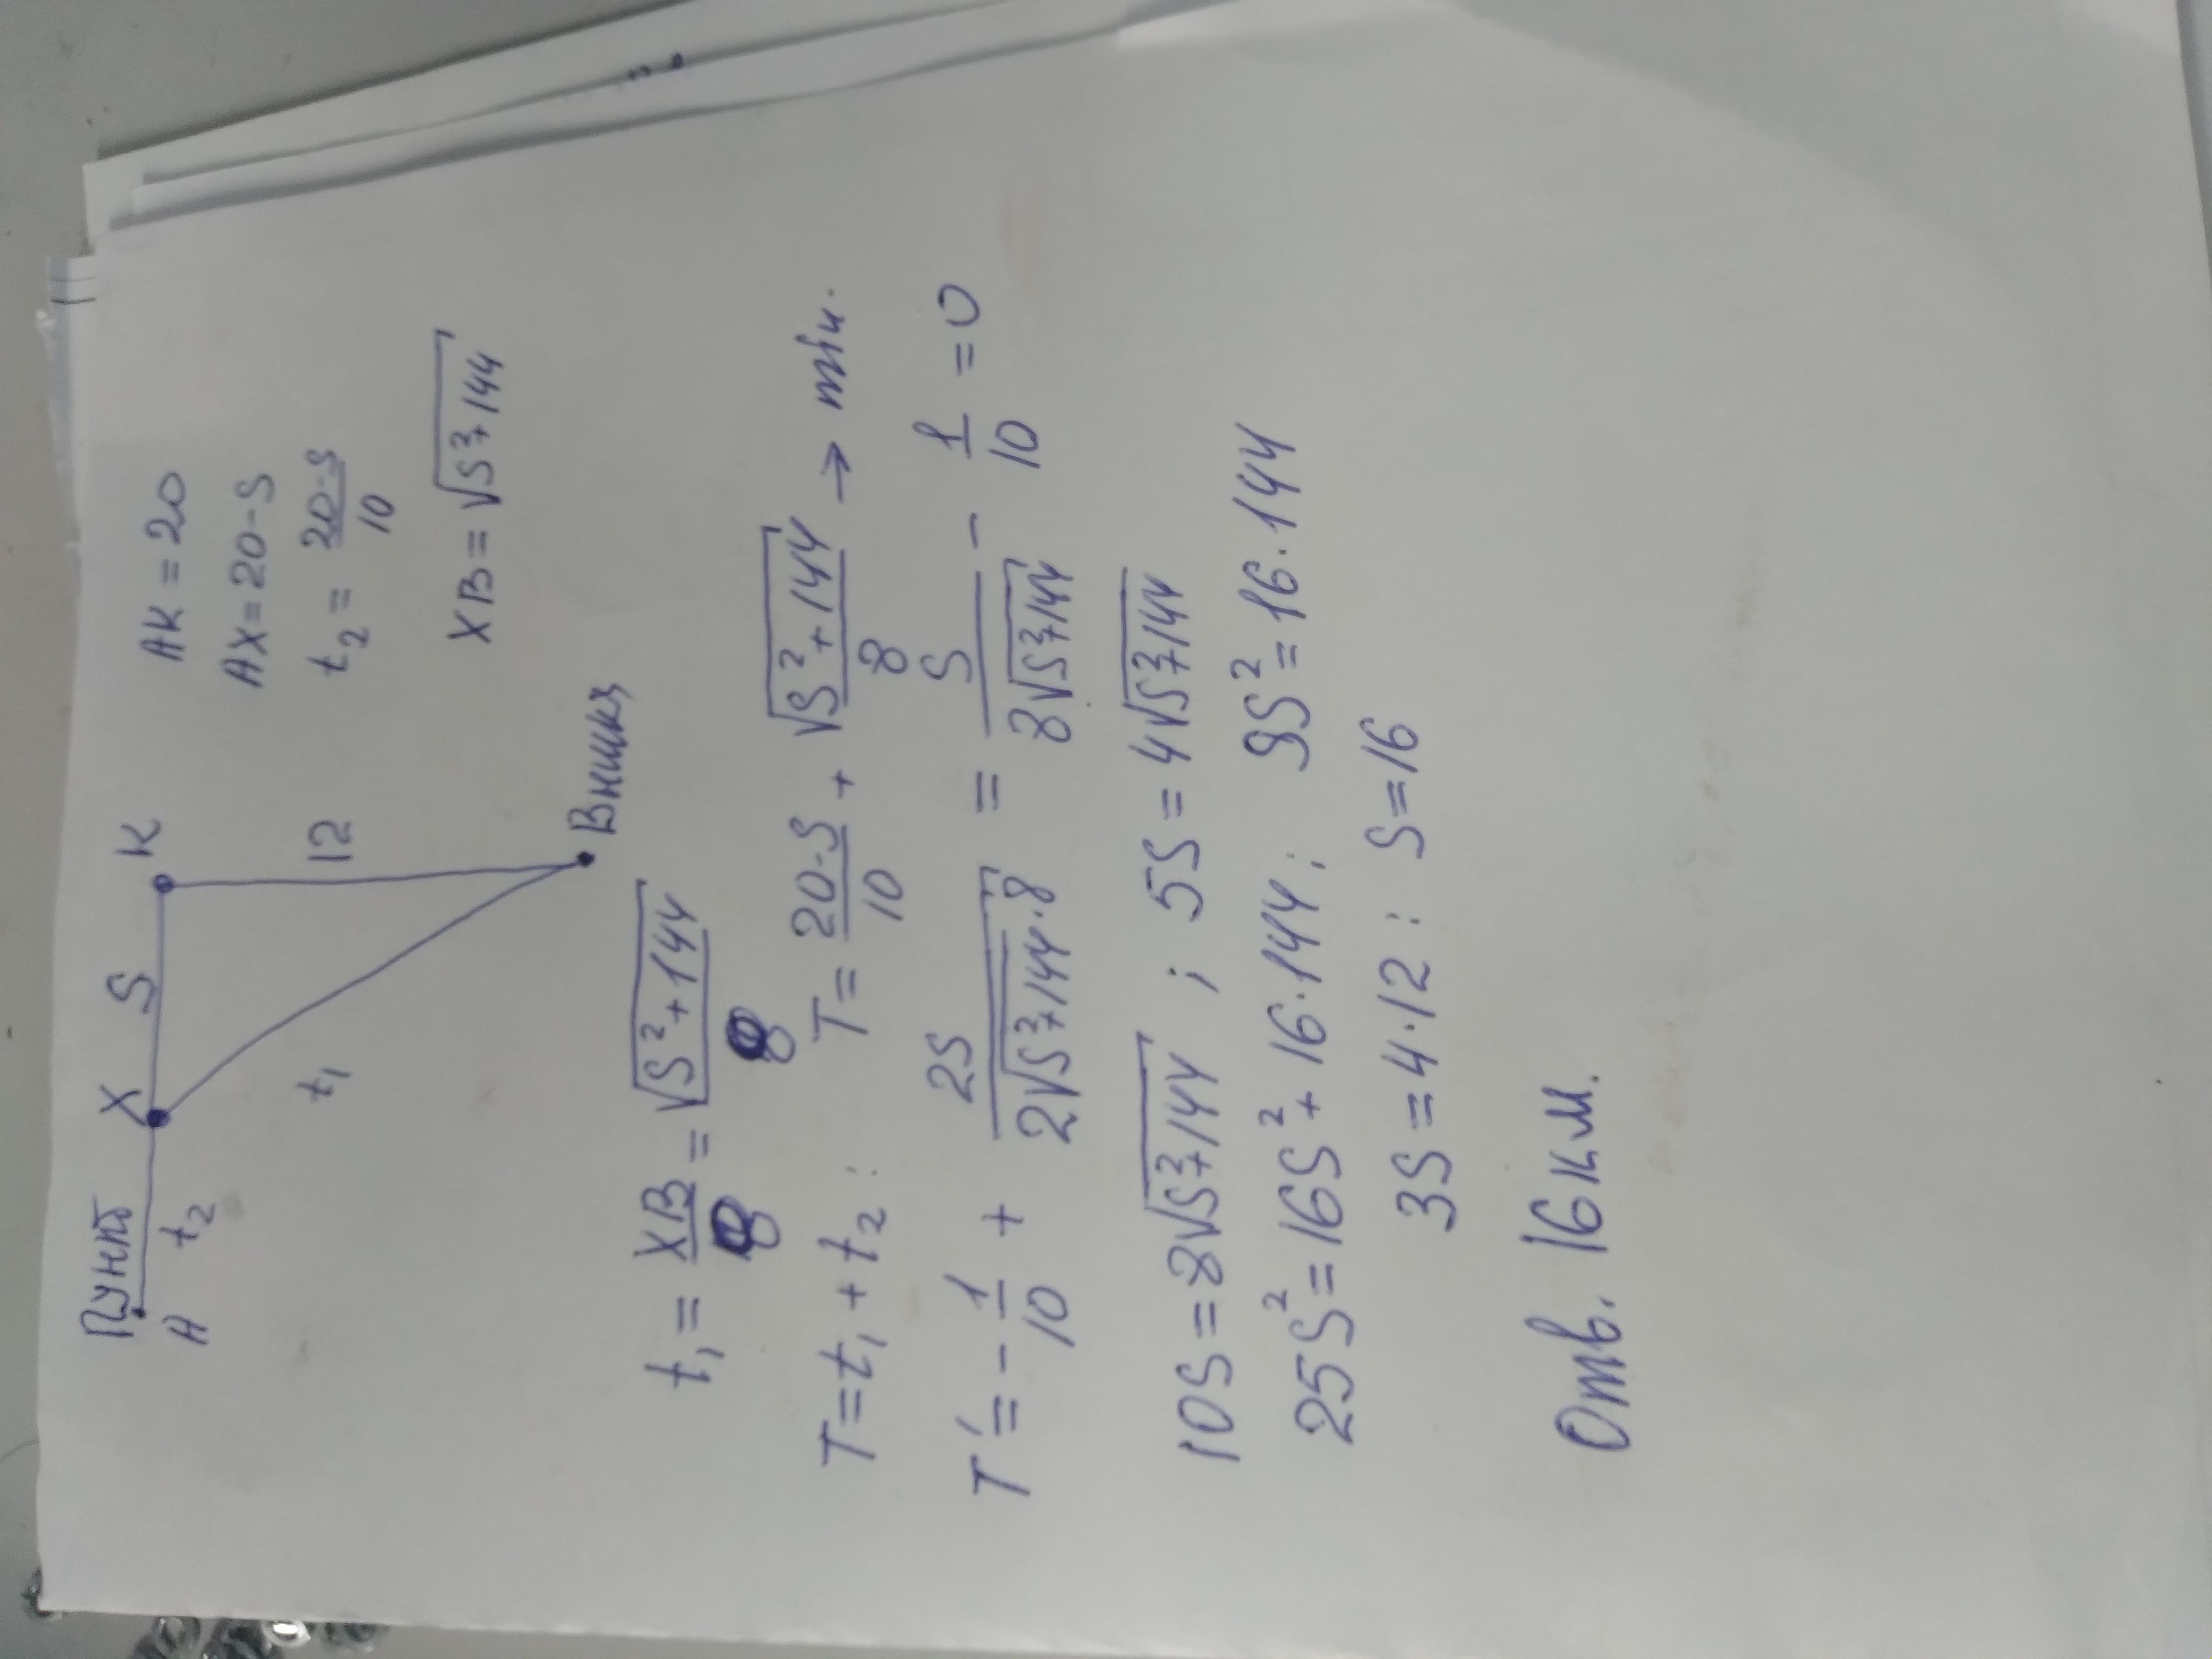 Пункт
X S K
A t₂
12
t₁
Вышка
AK = 20
AX = 20-S
t₂ = (20-S)/10
XB = √(S²+144)
t₁ = XB/8 = √(S²+144)/8
T = t₁ + t₂ : T = (20-S)/10 + √(S²+144)/8 → min.
T' = -1/10 + 2S/(2√(S²+144)·8) = S/(8√(S²+144)) - 1/10 = 0
10S = 8√(S²+144) ; 5S = 4√(S²+144)
25S² = 16S² + 16·144 ; 9S² = 16·144
3S = 4·12 : S = 16
Отв. 16 км.